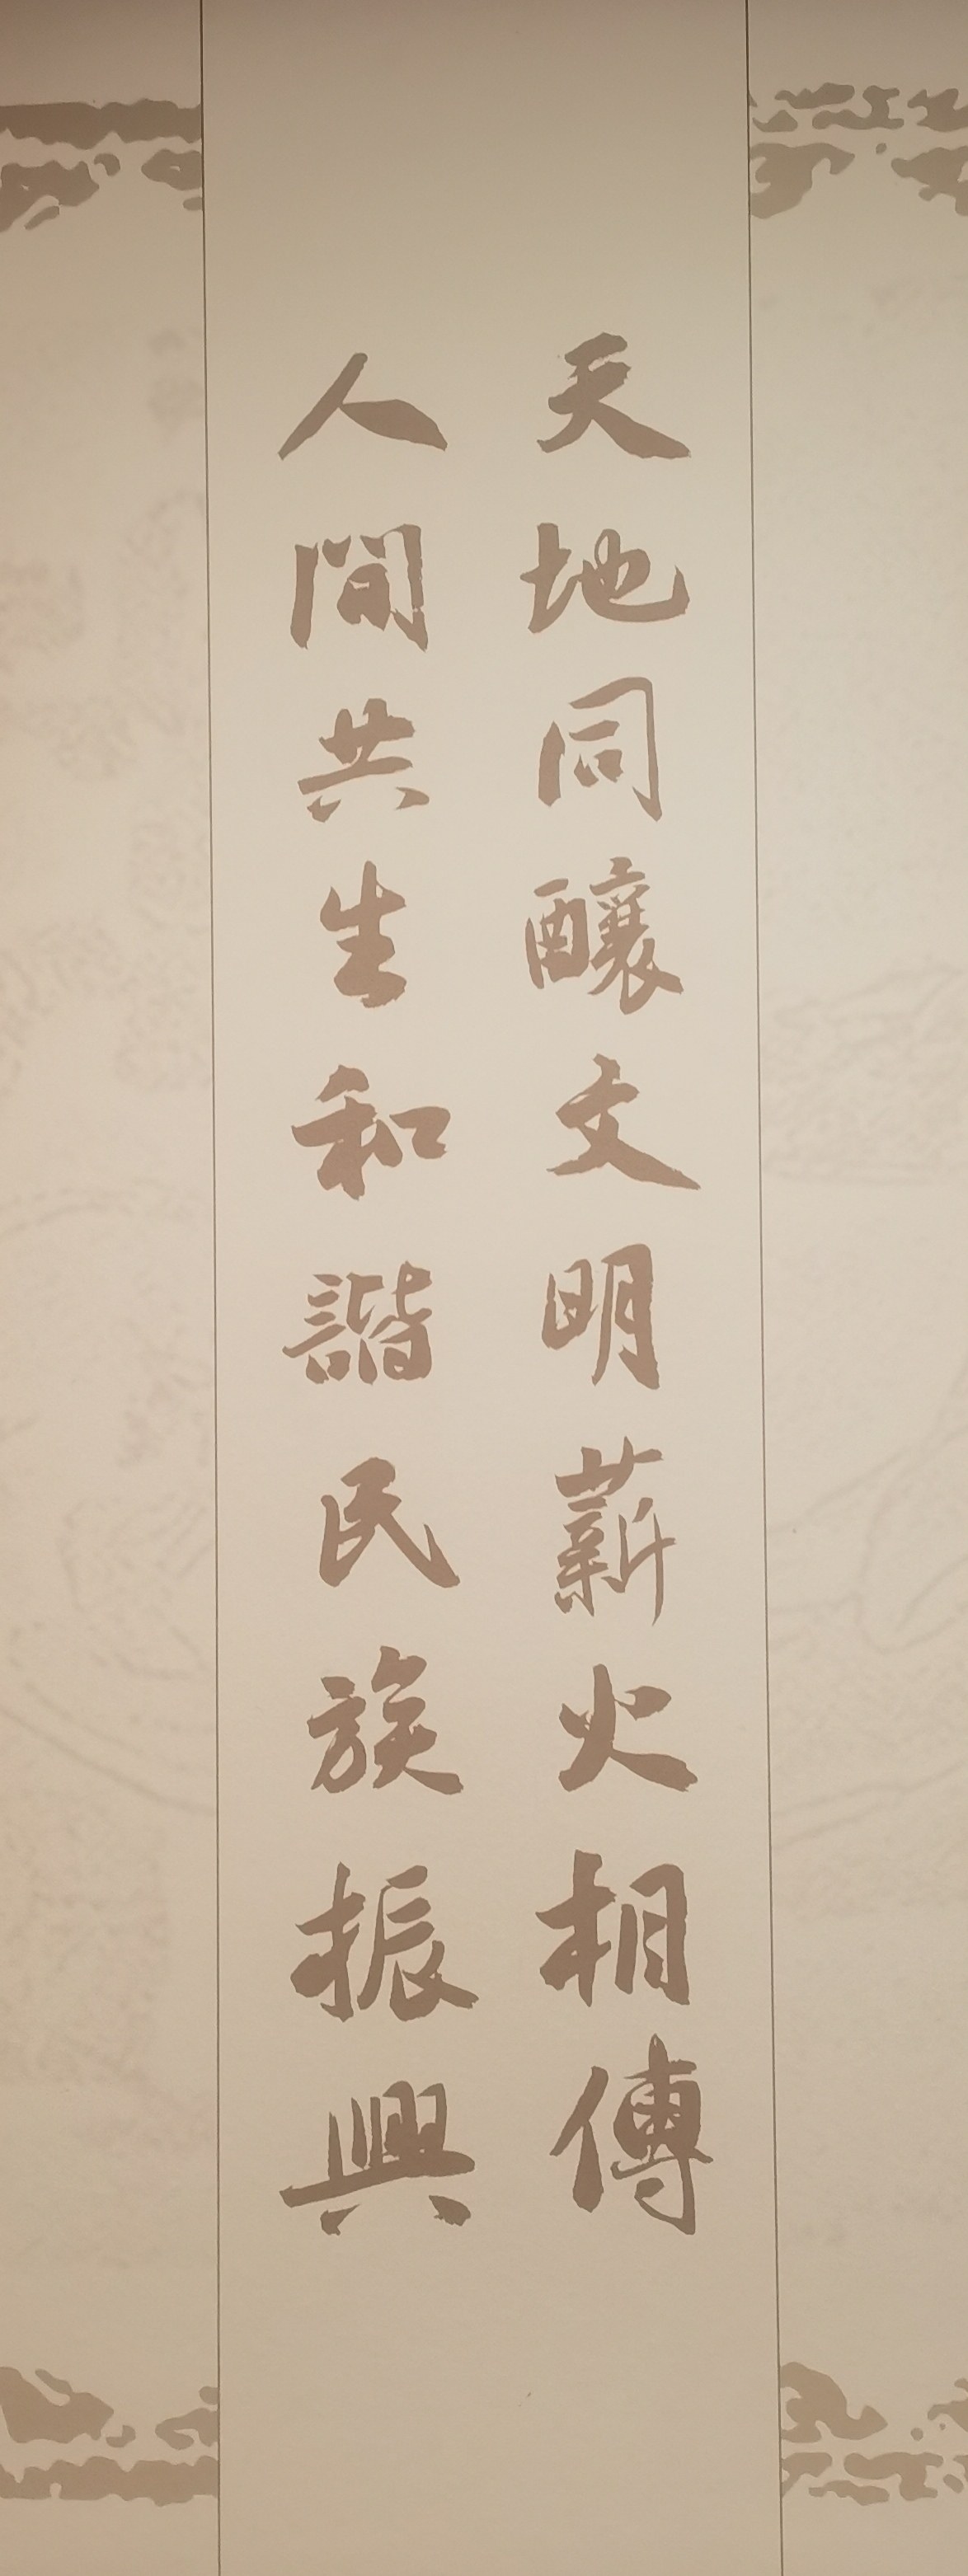 天地同釀文明薪火相傳
人間共生和諧民族振興